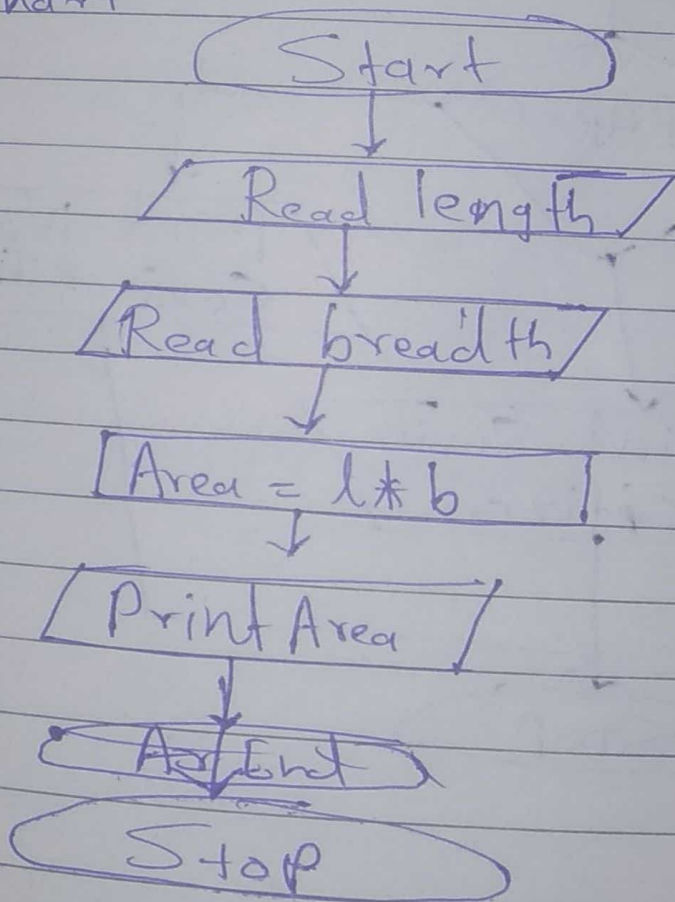 Start
Read length
Read breadth
Area = l * b
Print Area
End
Stop